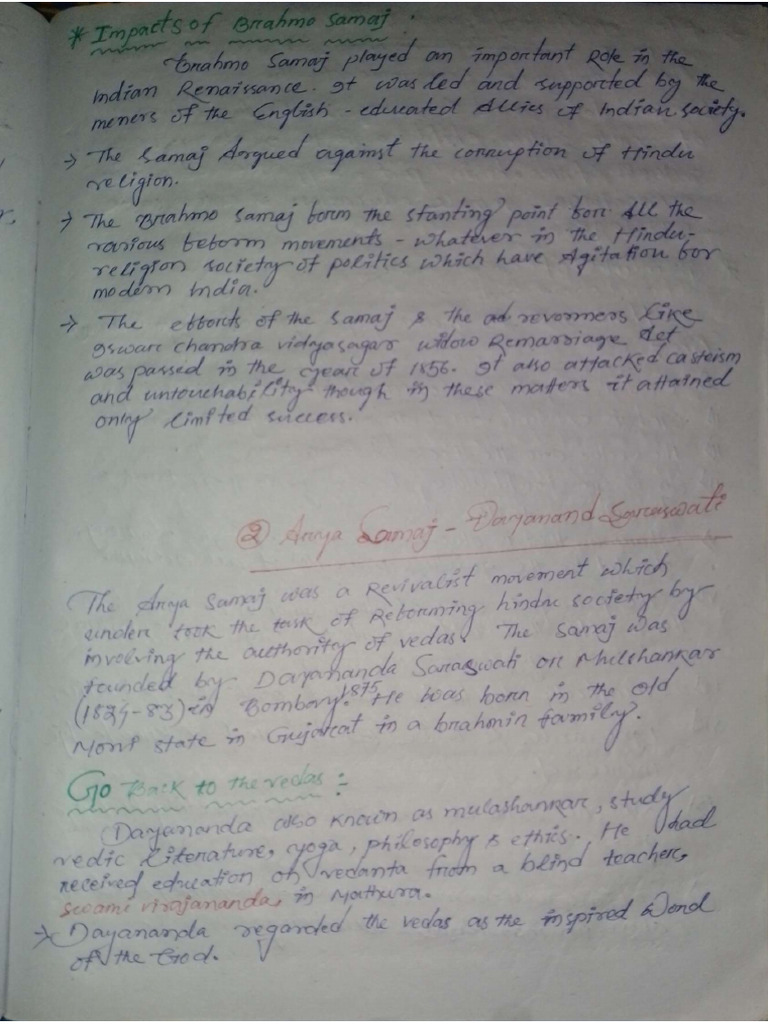 * Impacts of Brahmo Samaj :
Brahmo Samaj played an important Role in the
Indian Renaissance. It was led and supported by the
meners of the English - educated Allies of Indian society.
→ The Samaj Argued against the corruption of Hindu
religion.
→ The Brahmo Samaj form the starting point for All the
various reform movements - whatever in the Hindu-
religion society of politics which have Agitation for
modern India.
→ The efforts of the Samaj & the revormers like
Iswar chandra vidyasagar widow Remarriage Act
was passed in the year of 1856. It also attacked casteism
and untouchability though in these matters it attained
only limited success.
② Arya Samaj - Dayanand Saraswati
The Arya Samaj was a Revivalist movement which
under took the task of Reforming hindu society by
involving the authority of vedas. The Samaj was
founded by Dayananda Saraswati or Mulshankar
(1824-83) in Bombay 1875. He was born in the old
Morvi state in Gujarat in a brahmin family.
Go Back to the vedas :-
Dayananda also known as mulashankar, study
vedic Literature, yoga, philosophy & ethics. He had
received education on vedanta from a blind teacher,
Swami virajananda, in Mathura.
→ Dayananda regarded the vedas as the inspired Word
of the God.